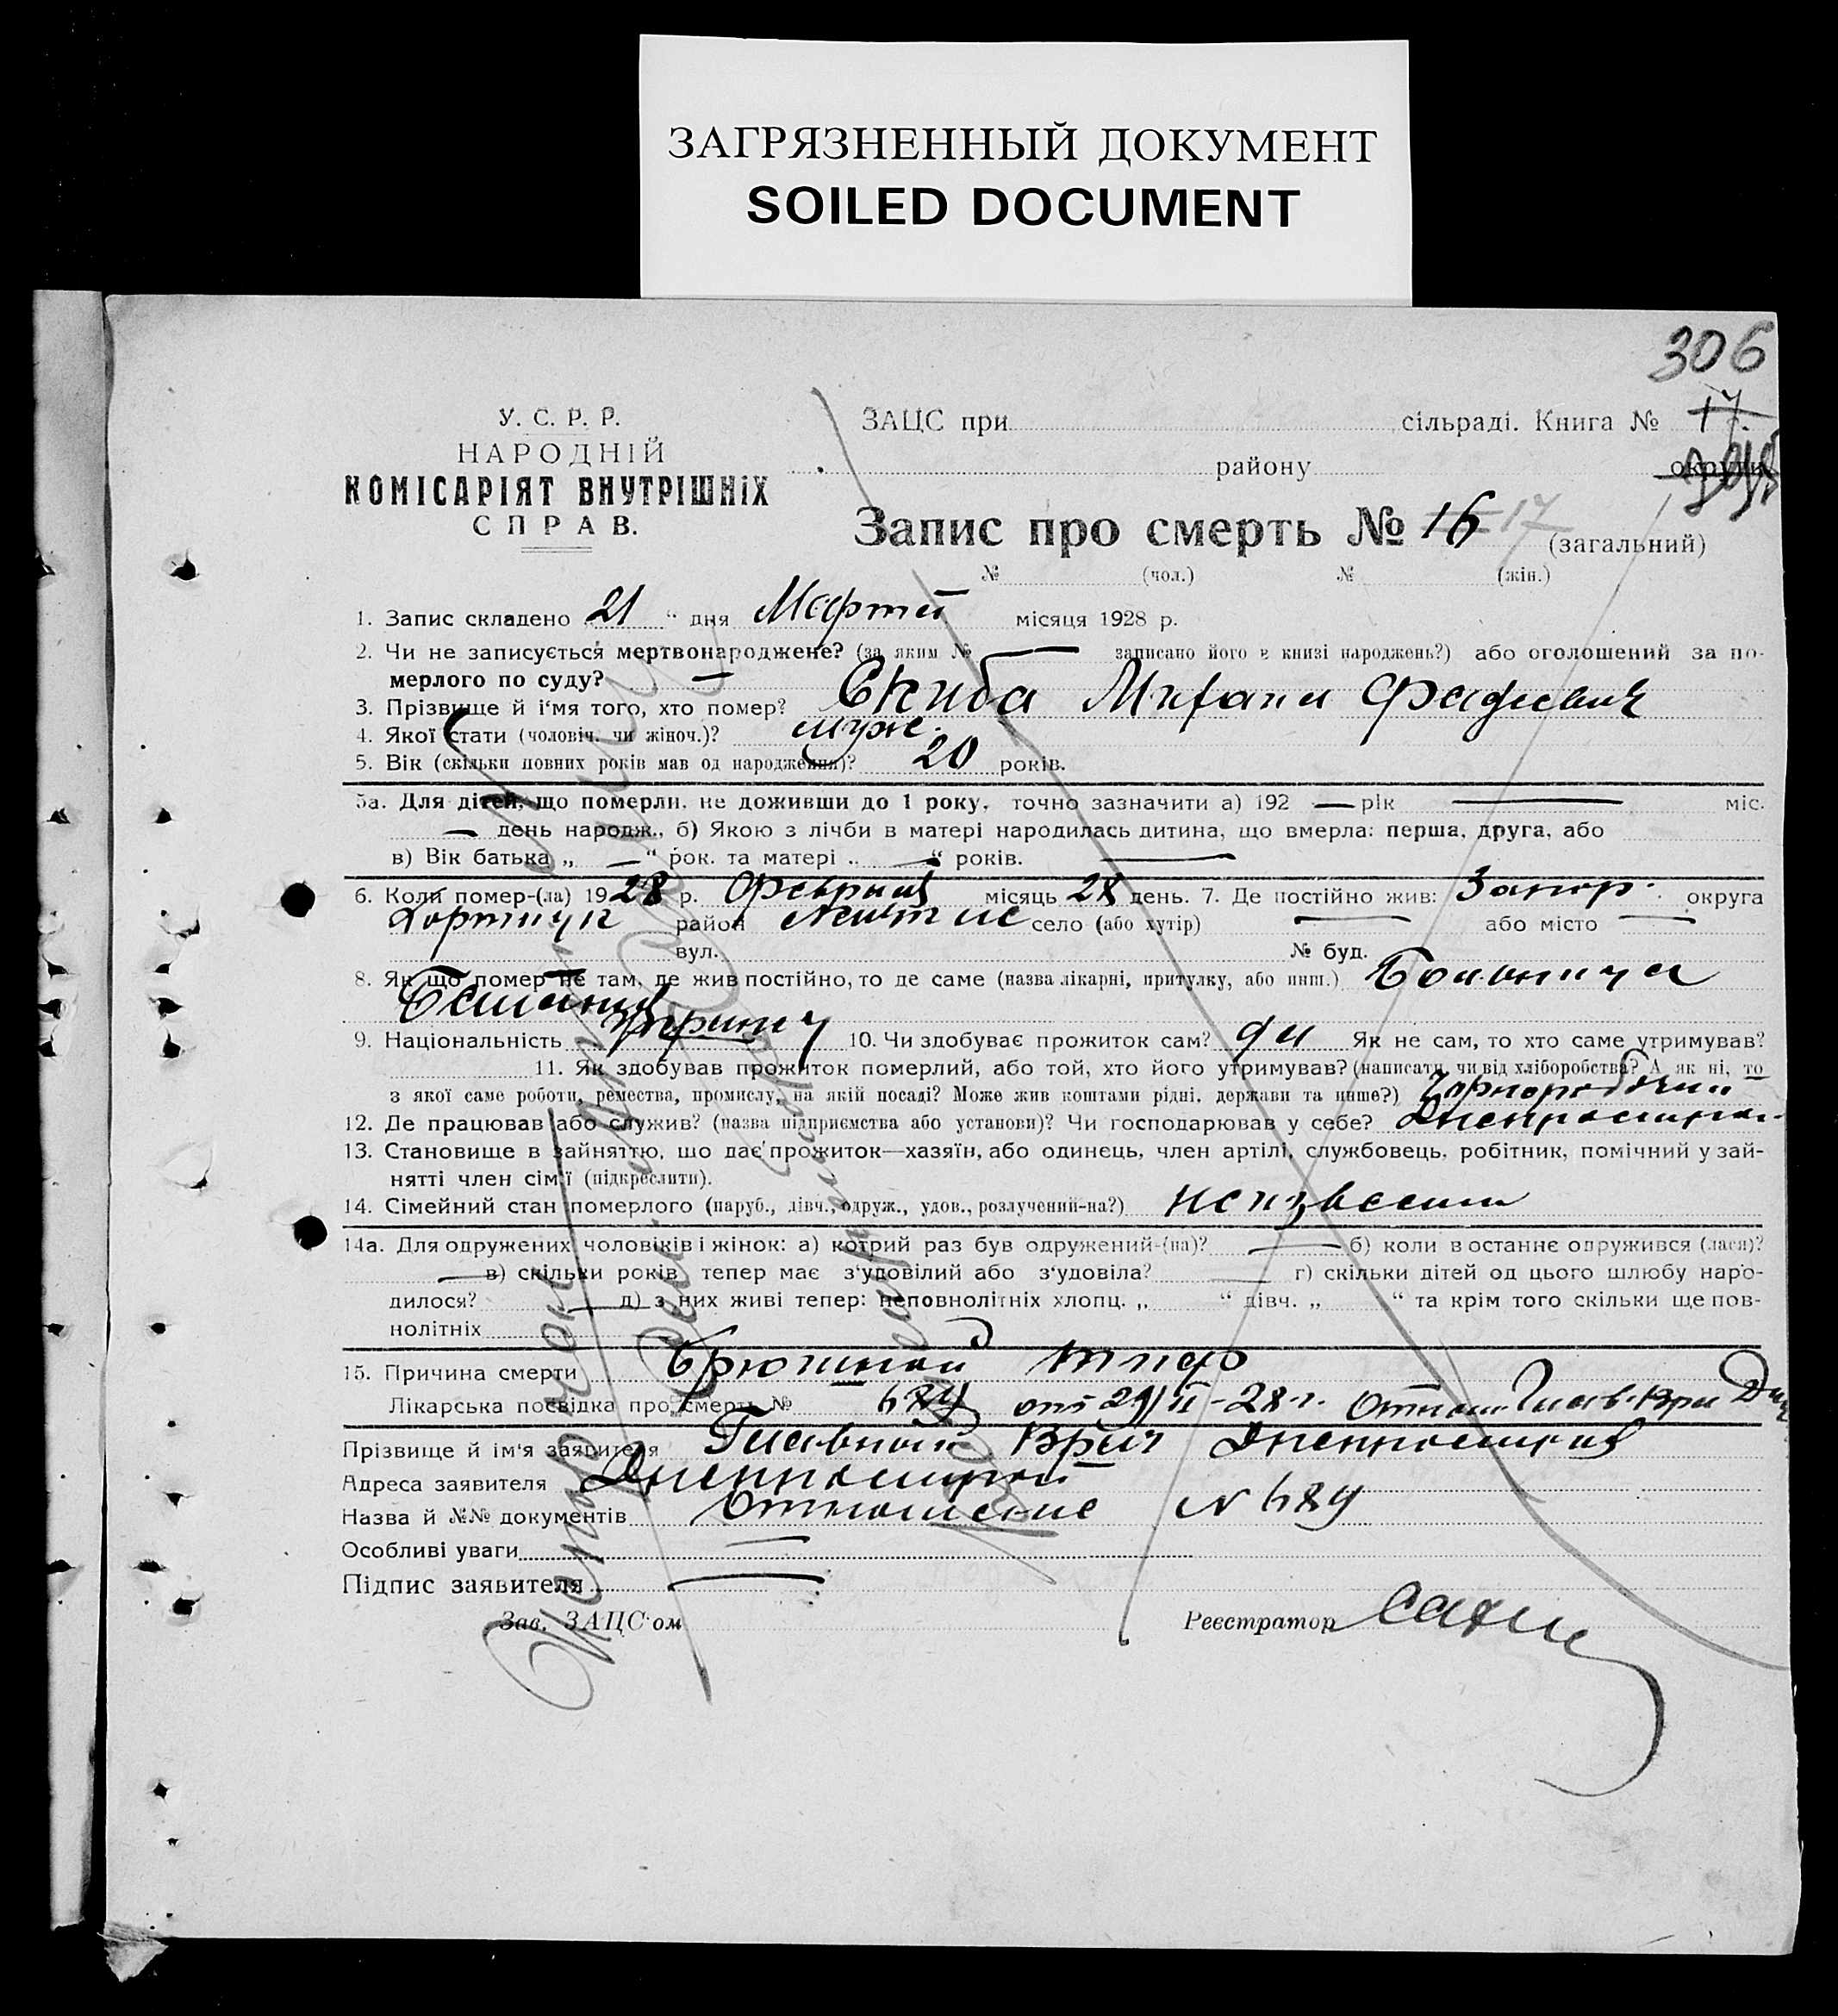 ЗАГРЯЗНЕННЫЙ ДОКУМЕНТ
SOILED DOCUMENT
306
У. С. Р. Р.
НАРОДНІЙ
КОМІСАРІЯТ ВНУТРІШНІХ
СПРАВ.
ЗАЦС при сільраді. Книга № 17.
району округи
Запис про смерть № 16 17 (загальний)
№ (чол.) № (жін.)
1. Запис складено 21 “ дня Марта місяця 1928 р.
2. Чи не записується мертвонароджене? (за яким № — записано його в книзі народжень?) або оголошений за по-
мерлого по суду? —
3. Прізвище й і'мя того, хто помер? Скиба Михаил Фадеевич
4. Якої стати (чоловіч. чи жіноч.)? муж.
5. Вік (скільки повних років мав од народження)? 20 років.
5а. Для дітей, що померли, не доживши до 1 року, точно зазначити а) 192 — рік — міс.
— день народж., б) Якою з лічби в матері народилась дитина, що вмерла: перша, друга, або
в) Вік батька „ — “ рок. та матері „ — “ років. —
6. Коли помер-(ла) 1928 р. Февраля місяць 28 день. 7. Де постійно жив: Запор. округа
район село (або хутір) — або місто —
вул. № буд.
8. Як що помер не там, де жив постійно, то де саме (назва лікарні, притулку, або инш.) Больница
9. Національність 10. Чи здобуває прожиток сам? да Як не сам, то хто саме утримував?
11. Як здобував прожиток померлий, або той, хто його утримував? (написати, чи від хліборобства? А як ні, то
з якої саме роботи, ремества, промислу, на якій посаді? Може жив коштами рідні, держави та инше?) Чорнорабочий
12. Де працював або служив? (назва підприємства або установи)? Чи господарював у себе? Днепрострой
13. Становище в зайняттю, що дає прожиток—хазяїн, або одинець, член артілі, службовець, робітник, помічний у зай-
нятті член сім'ї (підкреслити).
14. Сімейний стан померлого (паруб., дівч., одруж., удов., розлучений-на?) неизвестно
14а. Для одружених чоловіків і жінок: а) котрий раз був одружений-(на)? — б) коли востаннє одружився (лася)?
— в) скільки років тепер має з'удовілий або з'удовіла? — г) скільки дітей од цього шлюбу наро-
дилося? — д) з них живі тепер: неповнолітніх хлопц. „ “ дівч. „ “ та крім того скільки ще пов-
нолітніх
15. Причина смерти Брюшной тиф
Лікарська посвідка про смерть № 689 от 29/II-28 г. Отнош. Глав. Врач
Прізвище й ім'я заявителя Главный Врач Днепростроя
Адреса заявителя Днепрострой
Назва й №№ документів Отношение № 689
Особливі уваги —
Підпис заявителя —
Зав. ЗАЦС'ом Реєстратор